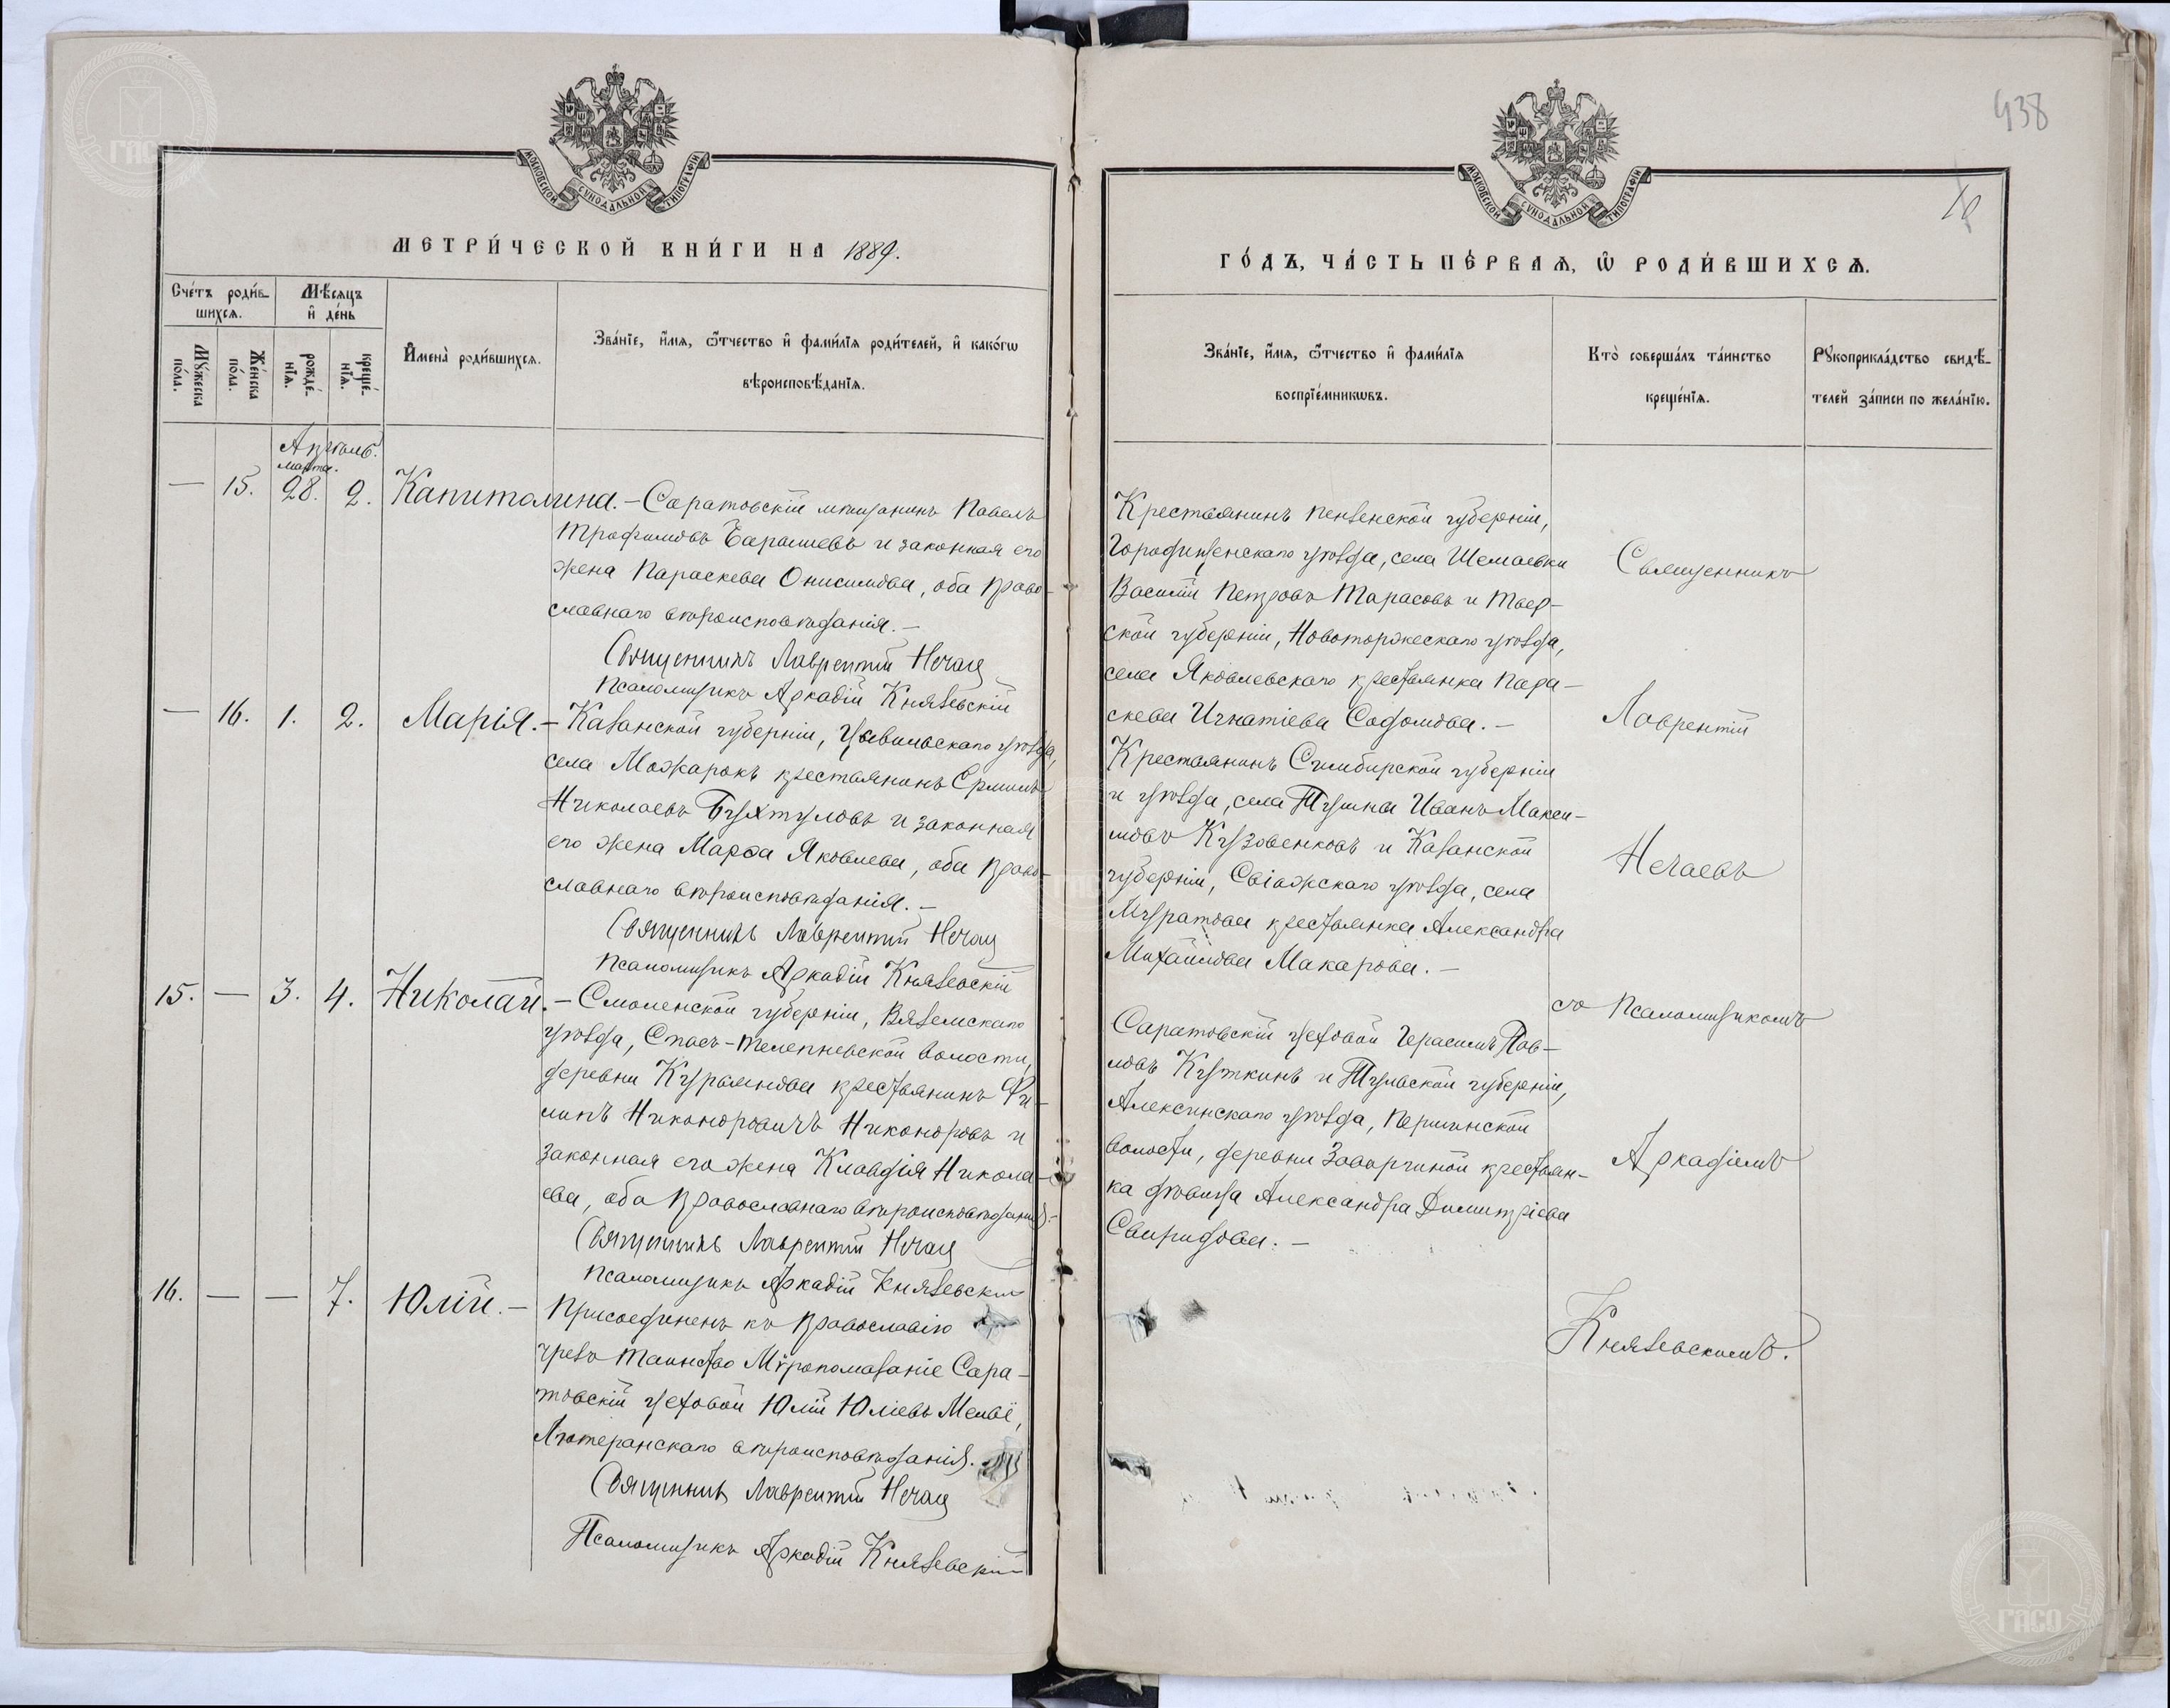 ГАСО
МОСКОВСКОЙ СѴНОДАЛЬНОЙ ТИПОГРАФІИ
МЕТРИ́ЧЕСКОЙ КНИ́ГИ НА 1889.
Сче́тъ роди́в-
шихсѧ.
Мѣ́сѧцъ
и҆ де́нь
Мꙋ́жеска
по́ла.
Же́нска
по́ла.
рожде́-
нїѧ.
креще́-
нїѧ.
И҆мена̀ роди́вшихсѧ.
Зва́нїе, и҆́мѧ, ѻ҆́тчество и҆ фами́лїѧ роди́телей, и҆ како́гѡ
вѣроисповѣ́данїѧ.
Апрѣль.
марта.
— 15. 28. 2. Капиталина. — Саратовскій мѣщанинъ Павелъ
Трофимовъ Барашевъ и законная его
жена Параскева Онисимова, оба право-
славнаго вѣроисповѣданія. —
Священникъ Лаврентій Нечаев
Псаломщикъ Аркадій Князевскій
— 16. 1. 2. Марія. — Казанской губерніи, Цывильскаго уѣзда,
села Можарокъ крестьянинъ Ермилъ
Николаевъ Бухтуловъ и законная
его жена Марѳа Яковлева, оба право-
славнаго вѣроисповѣданія. —
Священникъ Лаврентій Нечаев
Псаломщикъ Аркадій Князевскій
15. — 3. 4. Николай. — Смоленской губерніи, Вяземскаго
уѣзда, Спасъ-Телепневской волости,
деревни Курьянова крестьянинъ Фи-
липъ Никоноровичъ Никоноровъ и
законная его жена Клавдія Никола-
ева, оба православнаго вѣроисповѣданія. —
Священникъ Лаврентій Нечаев
Псаломщикъ Аркадій Князевскій
16. — — 7. Юлій. — Присоединенъ къ православію
чрезъ таинство Мѵропомазаніе Сара-
товскій цеховой Юлій Юліевъ Мельё,
Лютеранскаго вѣроисповѣданія.
Священникъ Лаврентій Нечаев
Псаломщикъ Аркадій Князевскій
938
МОСКОВСКОЙ СѴНОДАЛЬНОЙ ТИПОГРАФІИ
ГО́ДЪ, ЧА́СТЬ ПЕ́РВАѦ, Ѡ҆ РОДИ́ВШИХСѦ.
Зва́нїе, и҆́мѧ, ѻ҆́тчество и҆ фами́лїѧ
воспрїе́мникѡвъ.
Кто̀ соверша́лъ та́инство
креще́нїѧ.
Рꙋкоприкла́дство свидѣ́-
телей за́писи по жела́нїю.
Крестьянинъ Пензенской губерніи,
Городищенскаго уѣзда, села Шемаевки
Василій Петровъ Тарасовъ и Твер-
ской губерніи, Новоторжескаго уѣзда,
села Яковлевскаго крестьянка Пара-
скева Игнатіева Содомова. —
Крестьянинъ Симбирской губерніи
и уѣзда, села Тушны Иванъ Макси-
мовъ Кузовенковъ и Казанской
губерніи, Свіяжскаго уѣзда, села
Муратова крестьянка Александра
Михайлова Макарова. —
Саратовскій цеховой Герасимъ Пав-
ловъ Куткинъ и Тульской губерніи,
Алексинскаго уѣзда, Першинской
волости, деревни Заворчиной крестьян-
ка дѣвица Александра Димитріева
Свиридова. —
Священникъ
Лаврентій
Нечаевъ
съ псаломщикомъ
Аркадіемъ
Князевскимъ.
ГАСО